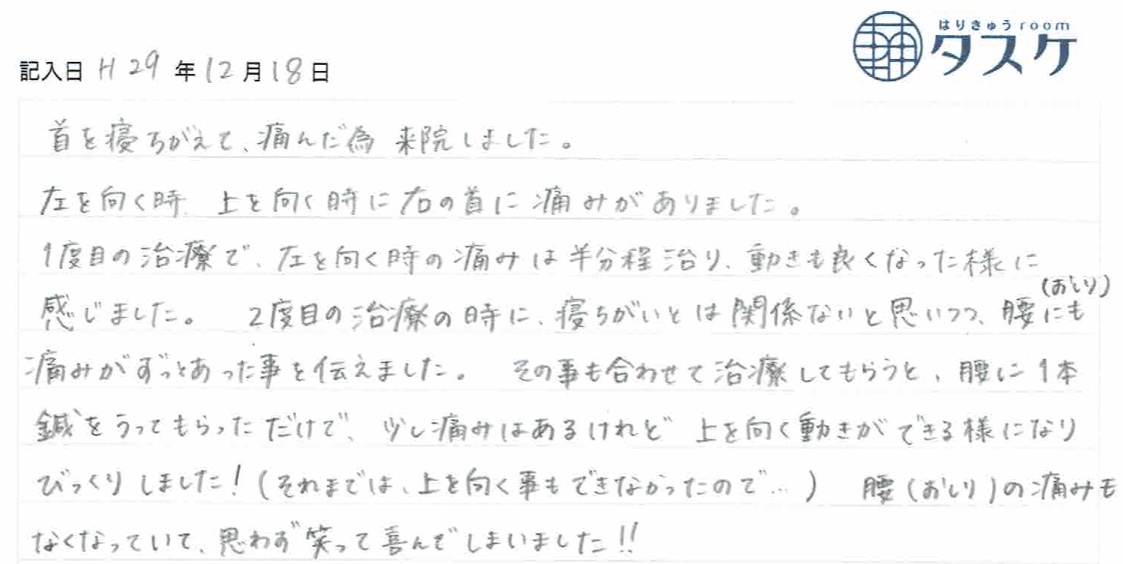 はりきゅうroom
タスケ
記入日 H29年12月18日
首を寝ちがえて、痛んだ為 来院しました。
左を向く時、上を向く時に右の首に痛みがありました。
1度目の治療で、左を向く時の痛みは半分程治り、動きも良くなった様に
感じました。 2度目の治療の時に、寝ちがいとは関係ないと思いつつ、腰(おしり)にも
痛みがずっとあった事を伝えました。 その事も合わせて治療してもらうと、腰に1本
鍼をうってもらっただけで、少し痛みはあるけれど 上を向く動きができる様になり
びっくりしました!(それまでは、上を向く事もできなかったので…) 腰(おしり)の痛みも
なくなっていて、思わず笑って喜んでしまいました!!